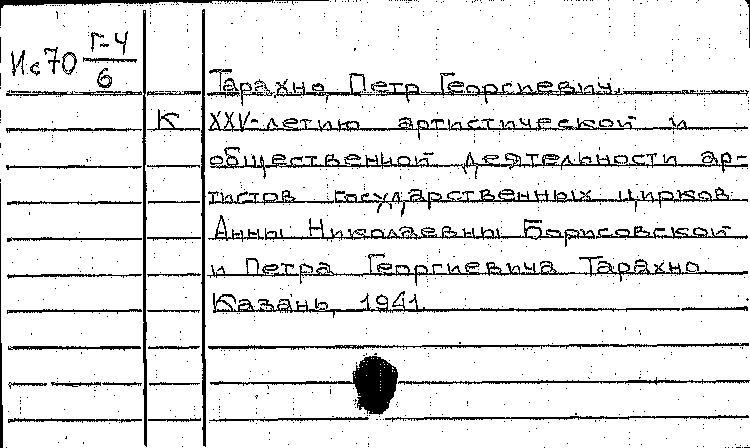 Ис70 Г-4
6
Тарахно, Петр Георгиевич.
К XXV-летию артистической и
общественной деятельности ар-
тистов государственных цирков
Анны Николаевны Борисовской
и Петра Георгиевича Тарахно.
Казань, 1941.